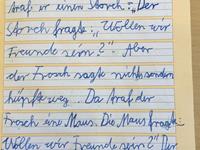 traf er einen Storch. „Der
Storch fragte: „Wollen wir
Freunde sein?" Aber
der Frosch sagte nichts sondern
hüpfte weg. Da traf der
Frosch eine Maus. Die Maus fragte:
„Wollen wir Freunde sein?" Der